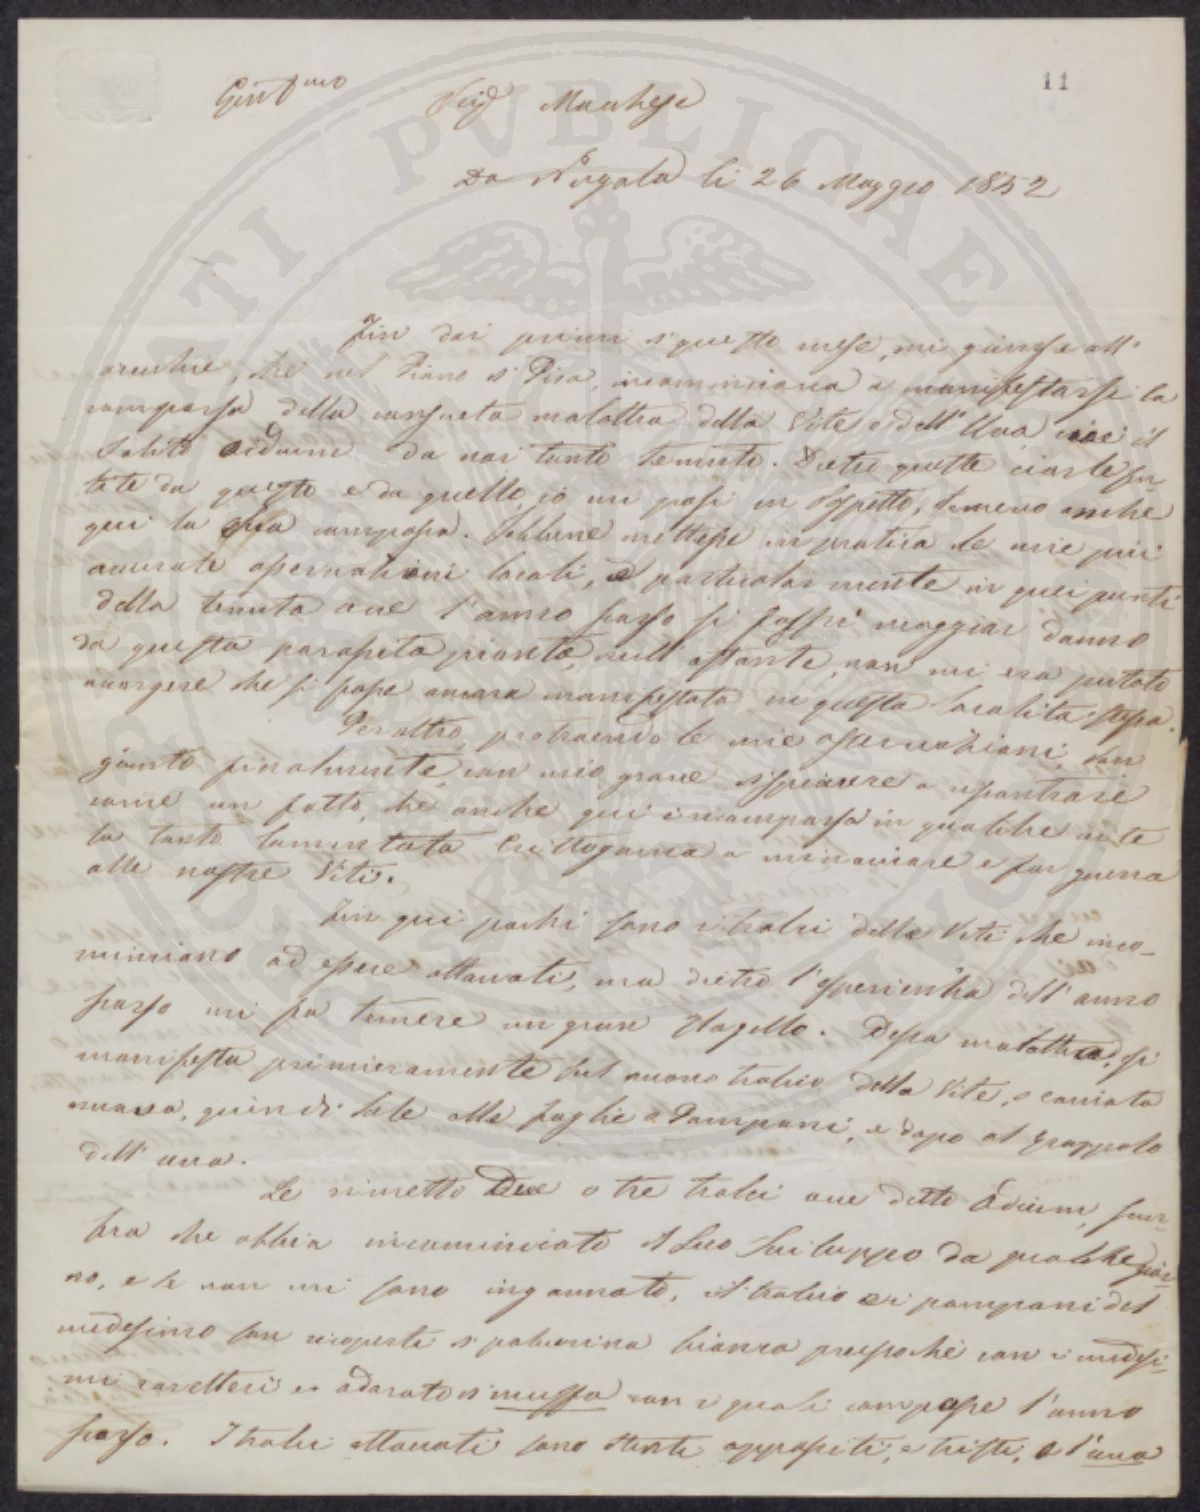 11
Gent.mo Sig.r Marchese
Da Nugola li 26 Maggio 1852
Fin dai primi di questo mese, mi giunse all'
orecchie, che nel Piano di Pisa, incominciava a manifestarsi la
comparsa della consueta malattia della Vite e dell'Uva cioè il
solito Oidium da noi tanto temuto. Dietro queste ciarle sen-
tite da questo e da quello, io mi posi in sospetto, temevo anche
qui la sua comparsa. Sebbene mettesse in pratica le mie più
accurate osservazioni locali, e particolarmente in quei punti
della tenuta ove l'anno passo si soffrì maggior danno
da questa parassita pianta, null'ostante, non mi era potuto
accorgere che si fosse ancora manifestata in questa località stessa.
Per altro, protraendo le mie osservazioni, son
giunto finalmente, con mio grave dispiacere a riscontrare
come un fatto, che anche qui è ricomparsa in qualche vite
la tanto lamentata Crittogama a minacciare e far guerra
alle nostre Viti.
Fin qui pochi sono i tralci delle Viti che inco-
minciano ad essere attaccati, ma dietro l'esperienza dell'anno
passo mi fa temere un gran flagello. Dessa malattia, si
manifesta primieramente sul nuovo tralcio della Vite, o cacciata
nuova, quindi sale alle foglie o Pampani, e dopo al grappolo
dell'uva.
Le rimetto Due o tre tralci ove detto Oidium, sem-
bra che abbia incominciato il suo sviluppo da qualche gior-
no, e se non mi sono ingannato, il tralcio e i pampani del
medesimo son ricoperti di polverina bianca pressoché con i medesi-
mi caratteri e odorato di muffa con i quali comparse l'anno
passo. I tralci attaccati sono stenti appassiti, e tristi, e l'uva